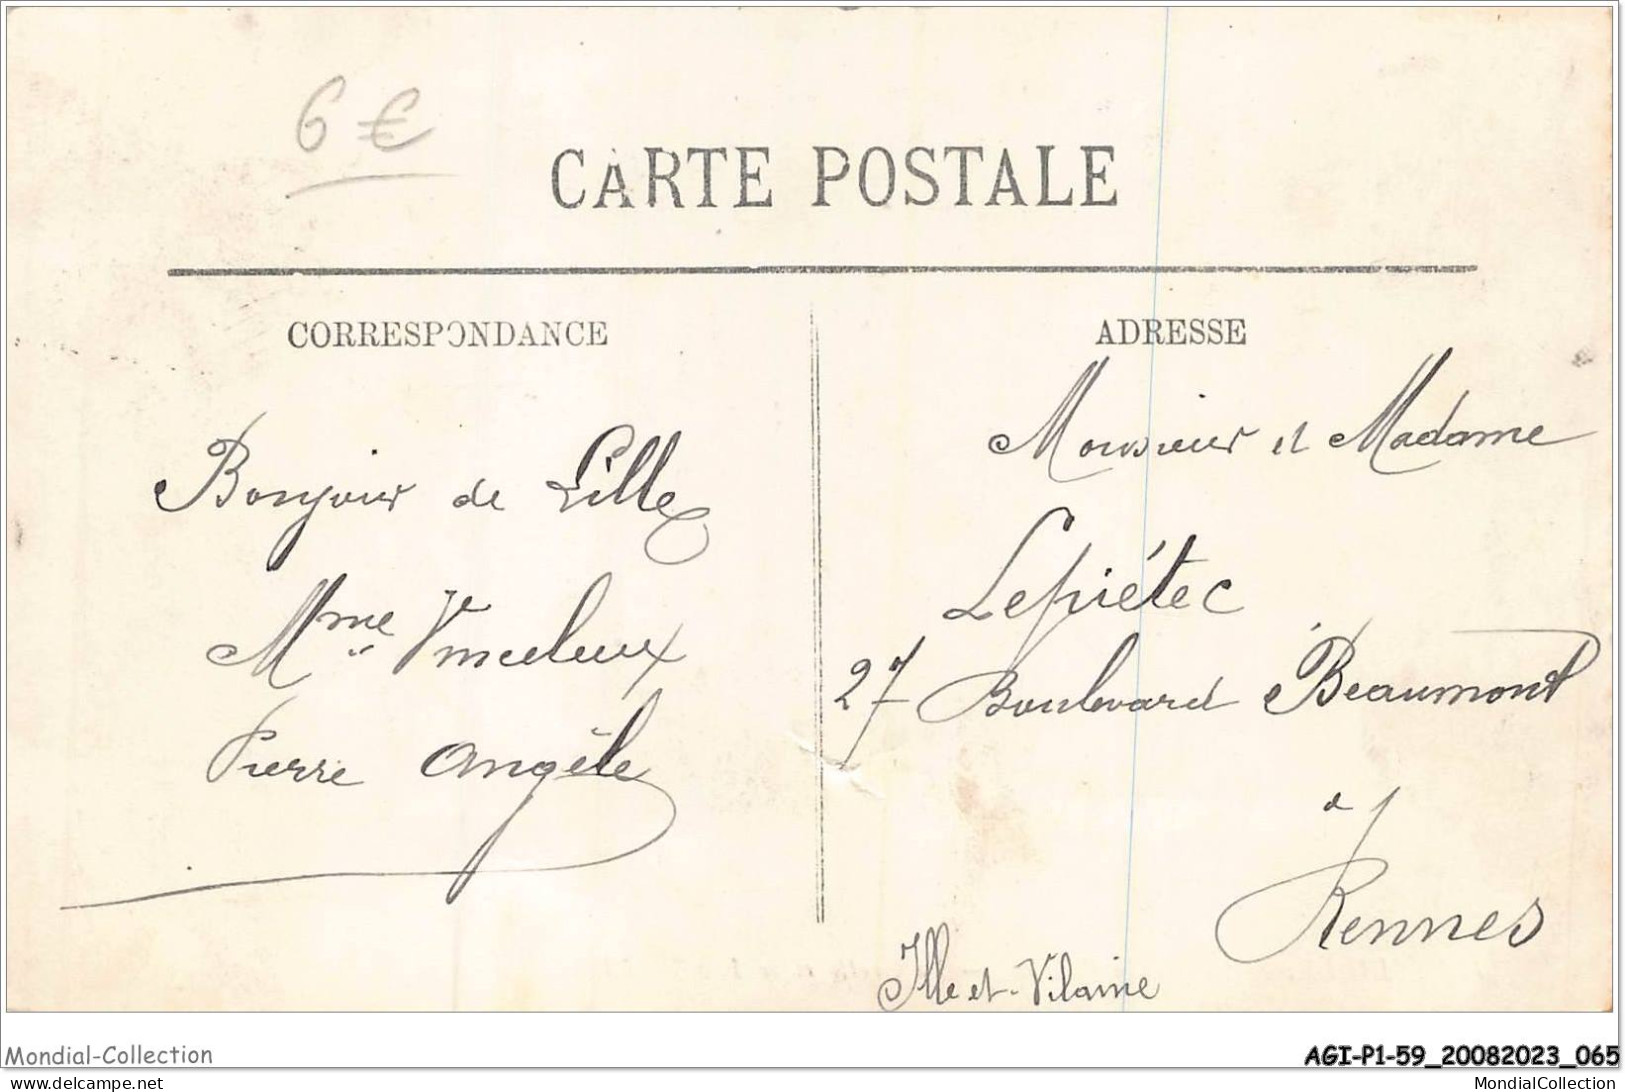 6 €
CARTE POSTALE
CORRESPONDANCE
ADRESSE
Bonjour de Lille
Mme
Pierre Angèle
Monsieur et Madame
Lepiétec
27 Boulevard Beaumont
à
Rennes
Ille et-Vilaine
Mondial-Collection
AGI-P1-59_20082023_065
www.delcampe.net
MondialCollection